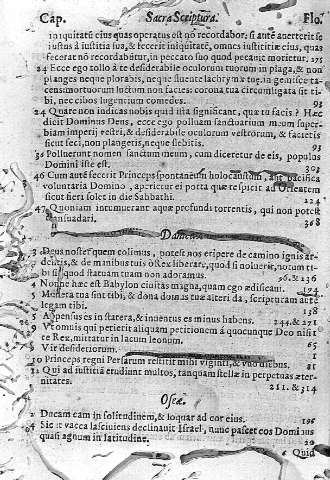 Cap. Sacræ Scripturæ. Flo.
iniquitatũ eius quas operatus est nõ recordabor: si autẽ auerterit se
iustus à iustitia sua, & fecerit iniquitatẽ, omnes iustitiæ eius, quas
fecerat nõ recordabũtur, in peccato suo quod peccauit morietur. 175
24 Ecce ego tollo à te desiderabile oculorum tuorum in plaga, & non
planges neque plorabis, neque fluent lachrymæ tuæ, in gemisce ta-
cens mortuorum luctum non facies: corona tua circumligata sit ti-
bi, nec cibos lugentium comedes. 93
24 Quare non indicas nobis quid ista significant, quæ tu facis? Hæc
dicit Dominus Deus, ecce ego polluam sanctuarium meum super-
biam imperij vestri, & desiderabile oculorum vestrorum, & facietis
sicut feci, non plangetis, neque flebitis. 93
36 Polluerunt nomen sanctum meum, cum diceretur de eis, populus
Domini iste est. 303
46 Cum autẽ fecerit Princeps spontaneum holocaustum, aut pacifica
voluntaria Domino, aperietur ei porta quæ respicit ad Orientem
sicut fieri solet in die Sabbathi. 224
47 Quoniam intumuerant aquæ profundi torrentis, qui non potest
transuadari. 368
Danielis
3 Deus noster quem colimus, potest nos eripere de camino ignis ar-
dentis, & de manibus tuis ô Rex liberare, quod si noluerit, notum ti-
bi sit, quod statuam tuam non adoramus. 36. & 136
4 Nonne hæc est Babylon ciuitas magna, quam ego ædificaui. 174
5 Munera tua sint tibi, & dona domus tuæ alteri da, scripturam autẽ
legam tibi. 138
5 Appensus es in statera, & inuentus es minus habens. 244. & 271
6 Vt omnis qui petierit aliquam petitionem à quocunque Deo nisi à
te Rex, mittatur in lacum leonum. 65
9 Vir desideriorum.
10 Princeps regni Persarum restitit mihi viginti, & vno diebus. 81
12 Qui ad iustitiã erudiunt multos, tanquam stellæ in perpetuas æter-
nitates. 211. & 314
Oseæ.
2 Ducam eam in solitudinem, & loquar ad cor eius. 196
4 Sicut vacca lasciuiens declinauit Israel, nunc pascet eos Dominus
quasi agnum in latitudine.
6 Quid